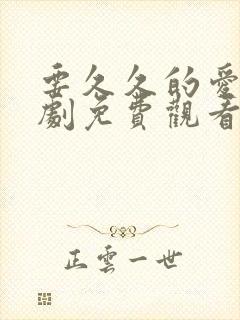 要久久的愛
劇免費觀看
正雲一世